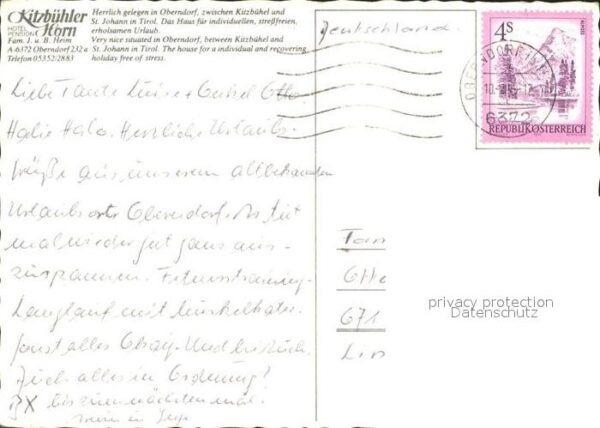 Kitzbühler
Horn
HOTEL
PENSION
Fam. J. u. B. Heim
A-6372 Oberndorf 232 a
Telefon 05352/2883
Herrlich gelegen in Oberndorf, zwischen Kitzbühel und
St. Johann in Tirol. Das Haus für individuellen, streßfreien,
erholsamen Urlaub.
Very nice situated in Oberndorf, between Kitzbühel and
St. Johann in Tirol. The house for a individual and recovering
holiday free of stress.
Deutschland
4S
ALMSEE
REPUBLIK ÖSTERREICH
OBERNDORF IN
6372
Liebe Tante Luise + Onkel Otto
Hallo Halo. Herzliche Urlaubs-
grüße aus unserem altbekannten
Urlaubsort Oberndorf. Es tut
mal wieder gut ganz aus-
zuspannen. Fitnesstraining
Langlauf mit Muskelkater.
Sonst alles Okay. Und bei Euch.
Auch alles in Ordnung?
bis zum nächsten mal.
Tan
Otto
671
Lin
privacy protection
Datenschutz